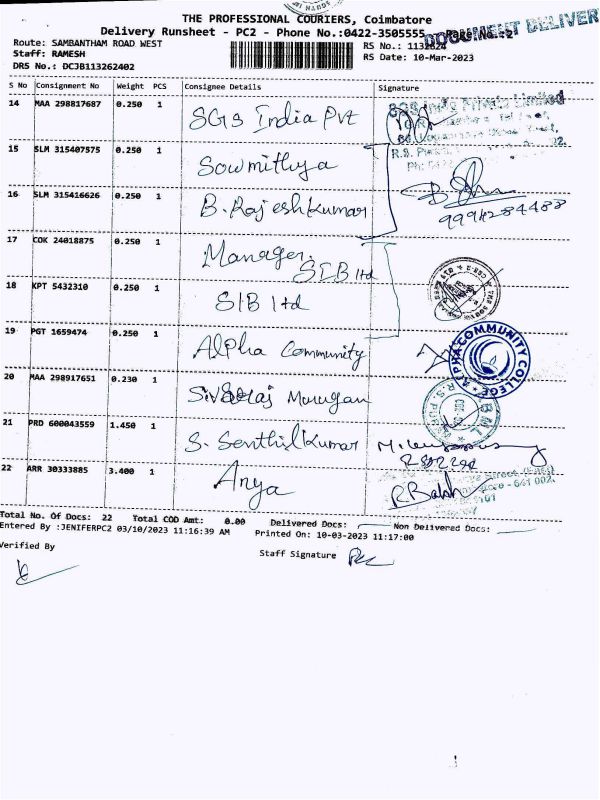 THE PROFESSIONAL COURIERS, Coimbatore
Delivery Runsheet - PC2 - Phone No.:0422-3505555
DOCUMENT DELIVER
Route: SAMBANTHAM ROAD WEST
Staff: RAMESH
DRS No.: DC3B113262402
RS No.:
RS Date: 10-Mar-2023
S No Consignment No Weight PCS Consignee Details Signature
14 MAA 298817687 0.250 1 SGS India Pvt
SGS India Private Limited
15 SLM 315407575 0.250 1 Sowmithya
16 SLM 315416626 0.250 1 B. Rajeshkumar
9994284488
17 COK 24018875 0.250 1 Manager. SIB ltd
18 KPT 5432310 0.250 1 SIB ltd
19 PGT 1659474 0.250 1 Alpha Community
ALPHA COMMUNITY COLLEGE
20 MAA 298917651 0.230 1 Sivaraj Murugan
21 PRD 600043559 1.450 1 S. Senthil Kumar
22 ARR 30333885 3.400 1 Anya
R.Babu
641 002.
Total No. Of Docs: 22 Total COD Amt: 0.00 Delivered Docs: Non Delivered Docs:
Entered By :JENIFERPC2 03/10/2023 11:16:39 AM Printed On: 10-03-2023 11:17:00
Verified By Staff Signature